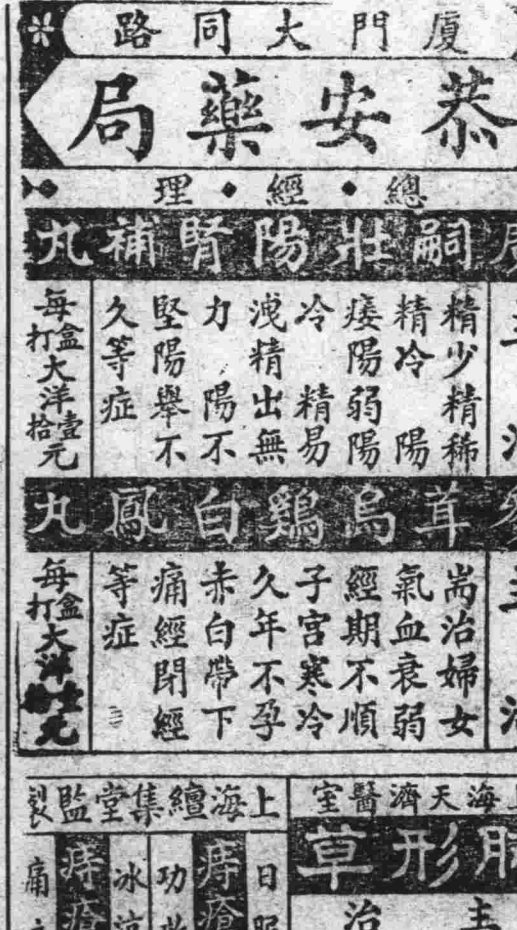 廈門大同路
恭安藥局
總◆經◆理
嗣壯陽腎補丸
主
精少精稀
精冷 陽
痿陽弱陽
冷 精易
洩精出無
力 陽不
堅陽舉不
久等症
每盒大洋壹元
打拾
茸烏鷄白鳳丸
主治
耑治婦女
氣血衰弱
經期不順
子宮寒冷
久年不孕
赤白帶下
痛經閉經
等症
每盒大洋
打元
上海天濟醫室
形草
主治
上海繵集堂監製
日服
痔瘡
功
冰涼
痔瘡
痛